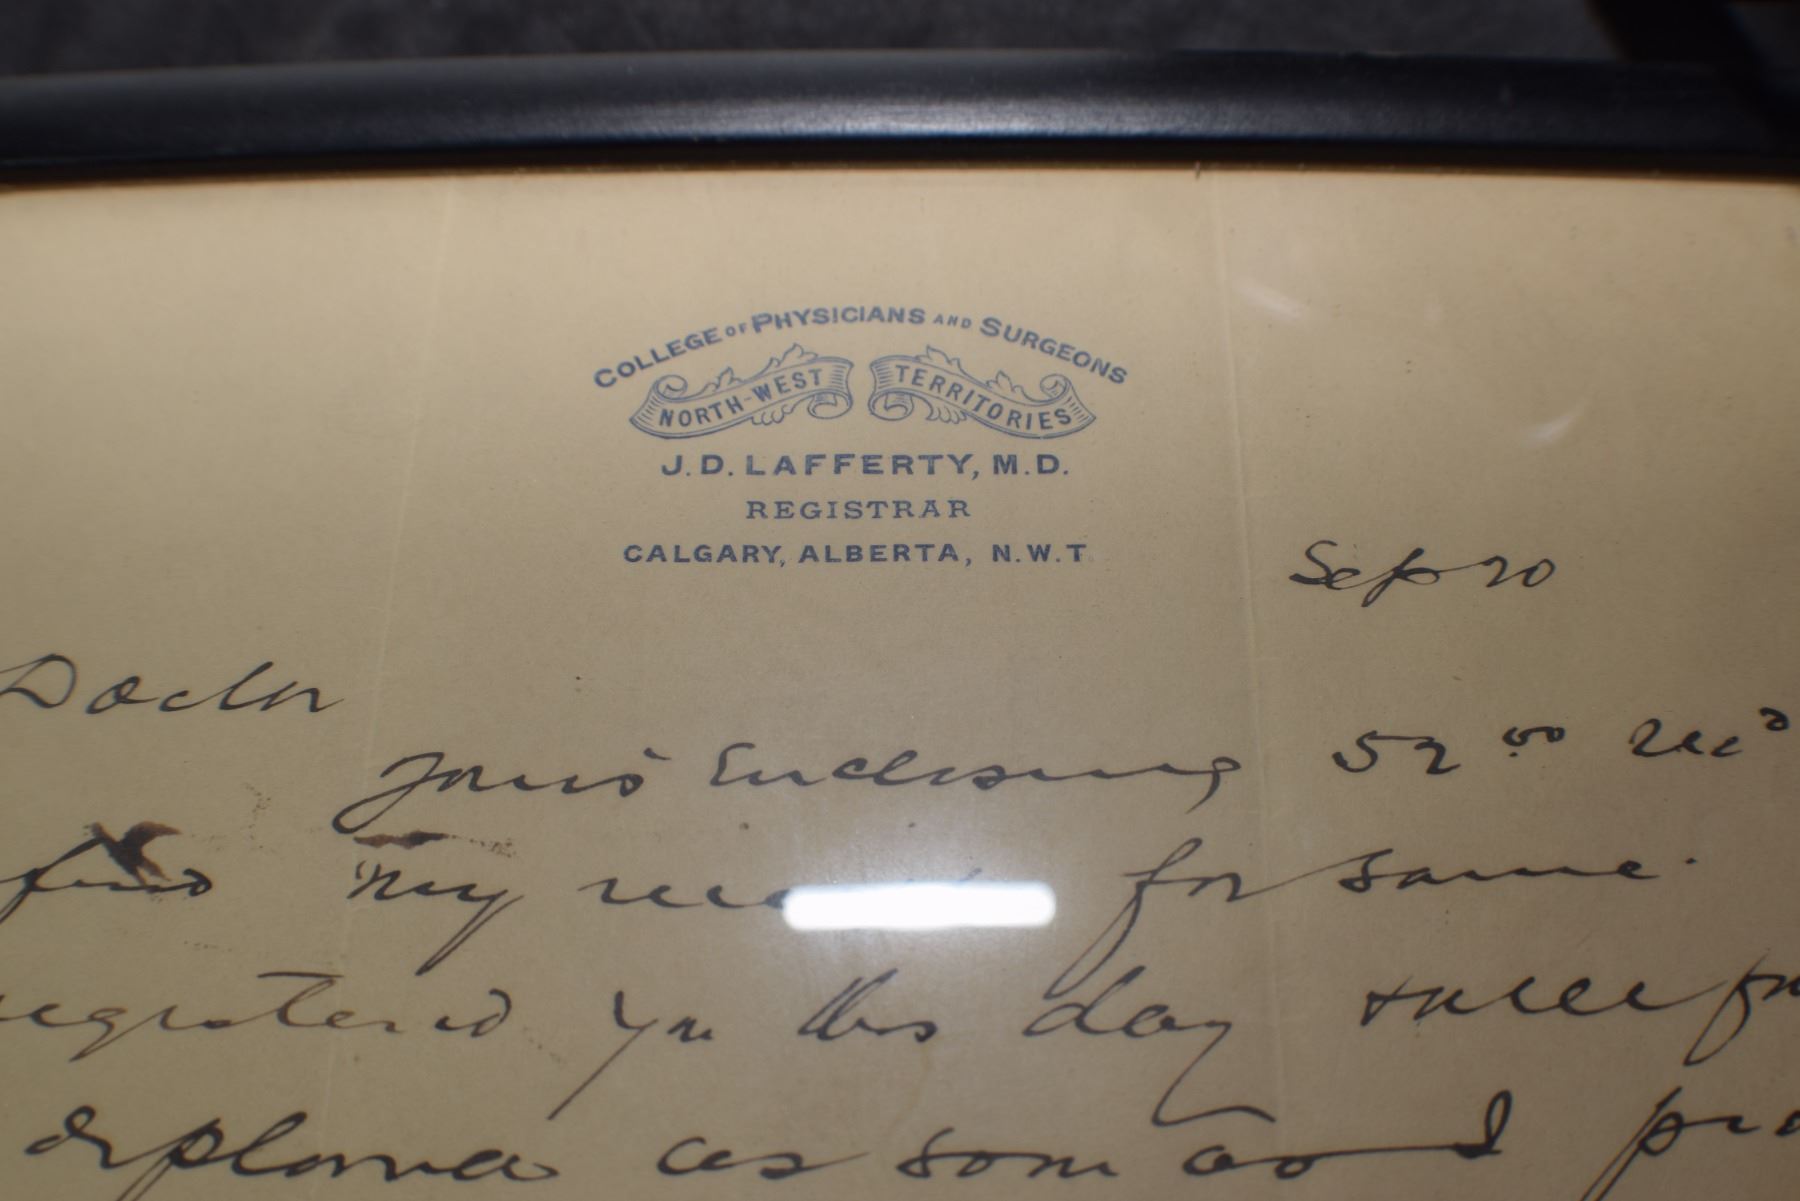 COLLEGE OF PHYSICIANS AND SURGEONS
NORTH-WEST TERRITORIES
J. D. LAFFERTY, M.D.
REGISTRAR
CALGARY, ALBERTA, N.W.T
Sep 20
Doctor
Yours Enclosing 52 00 Recd
find my for same.
registered you this day
diploma as soon as I